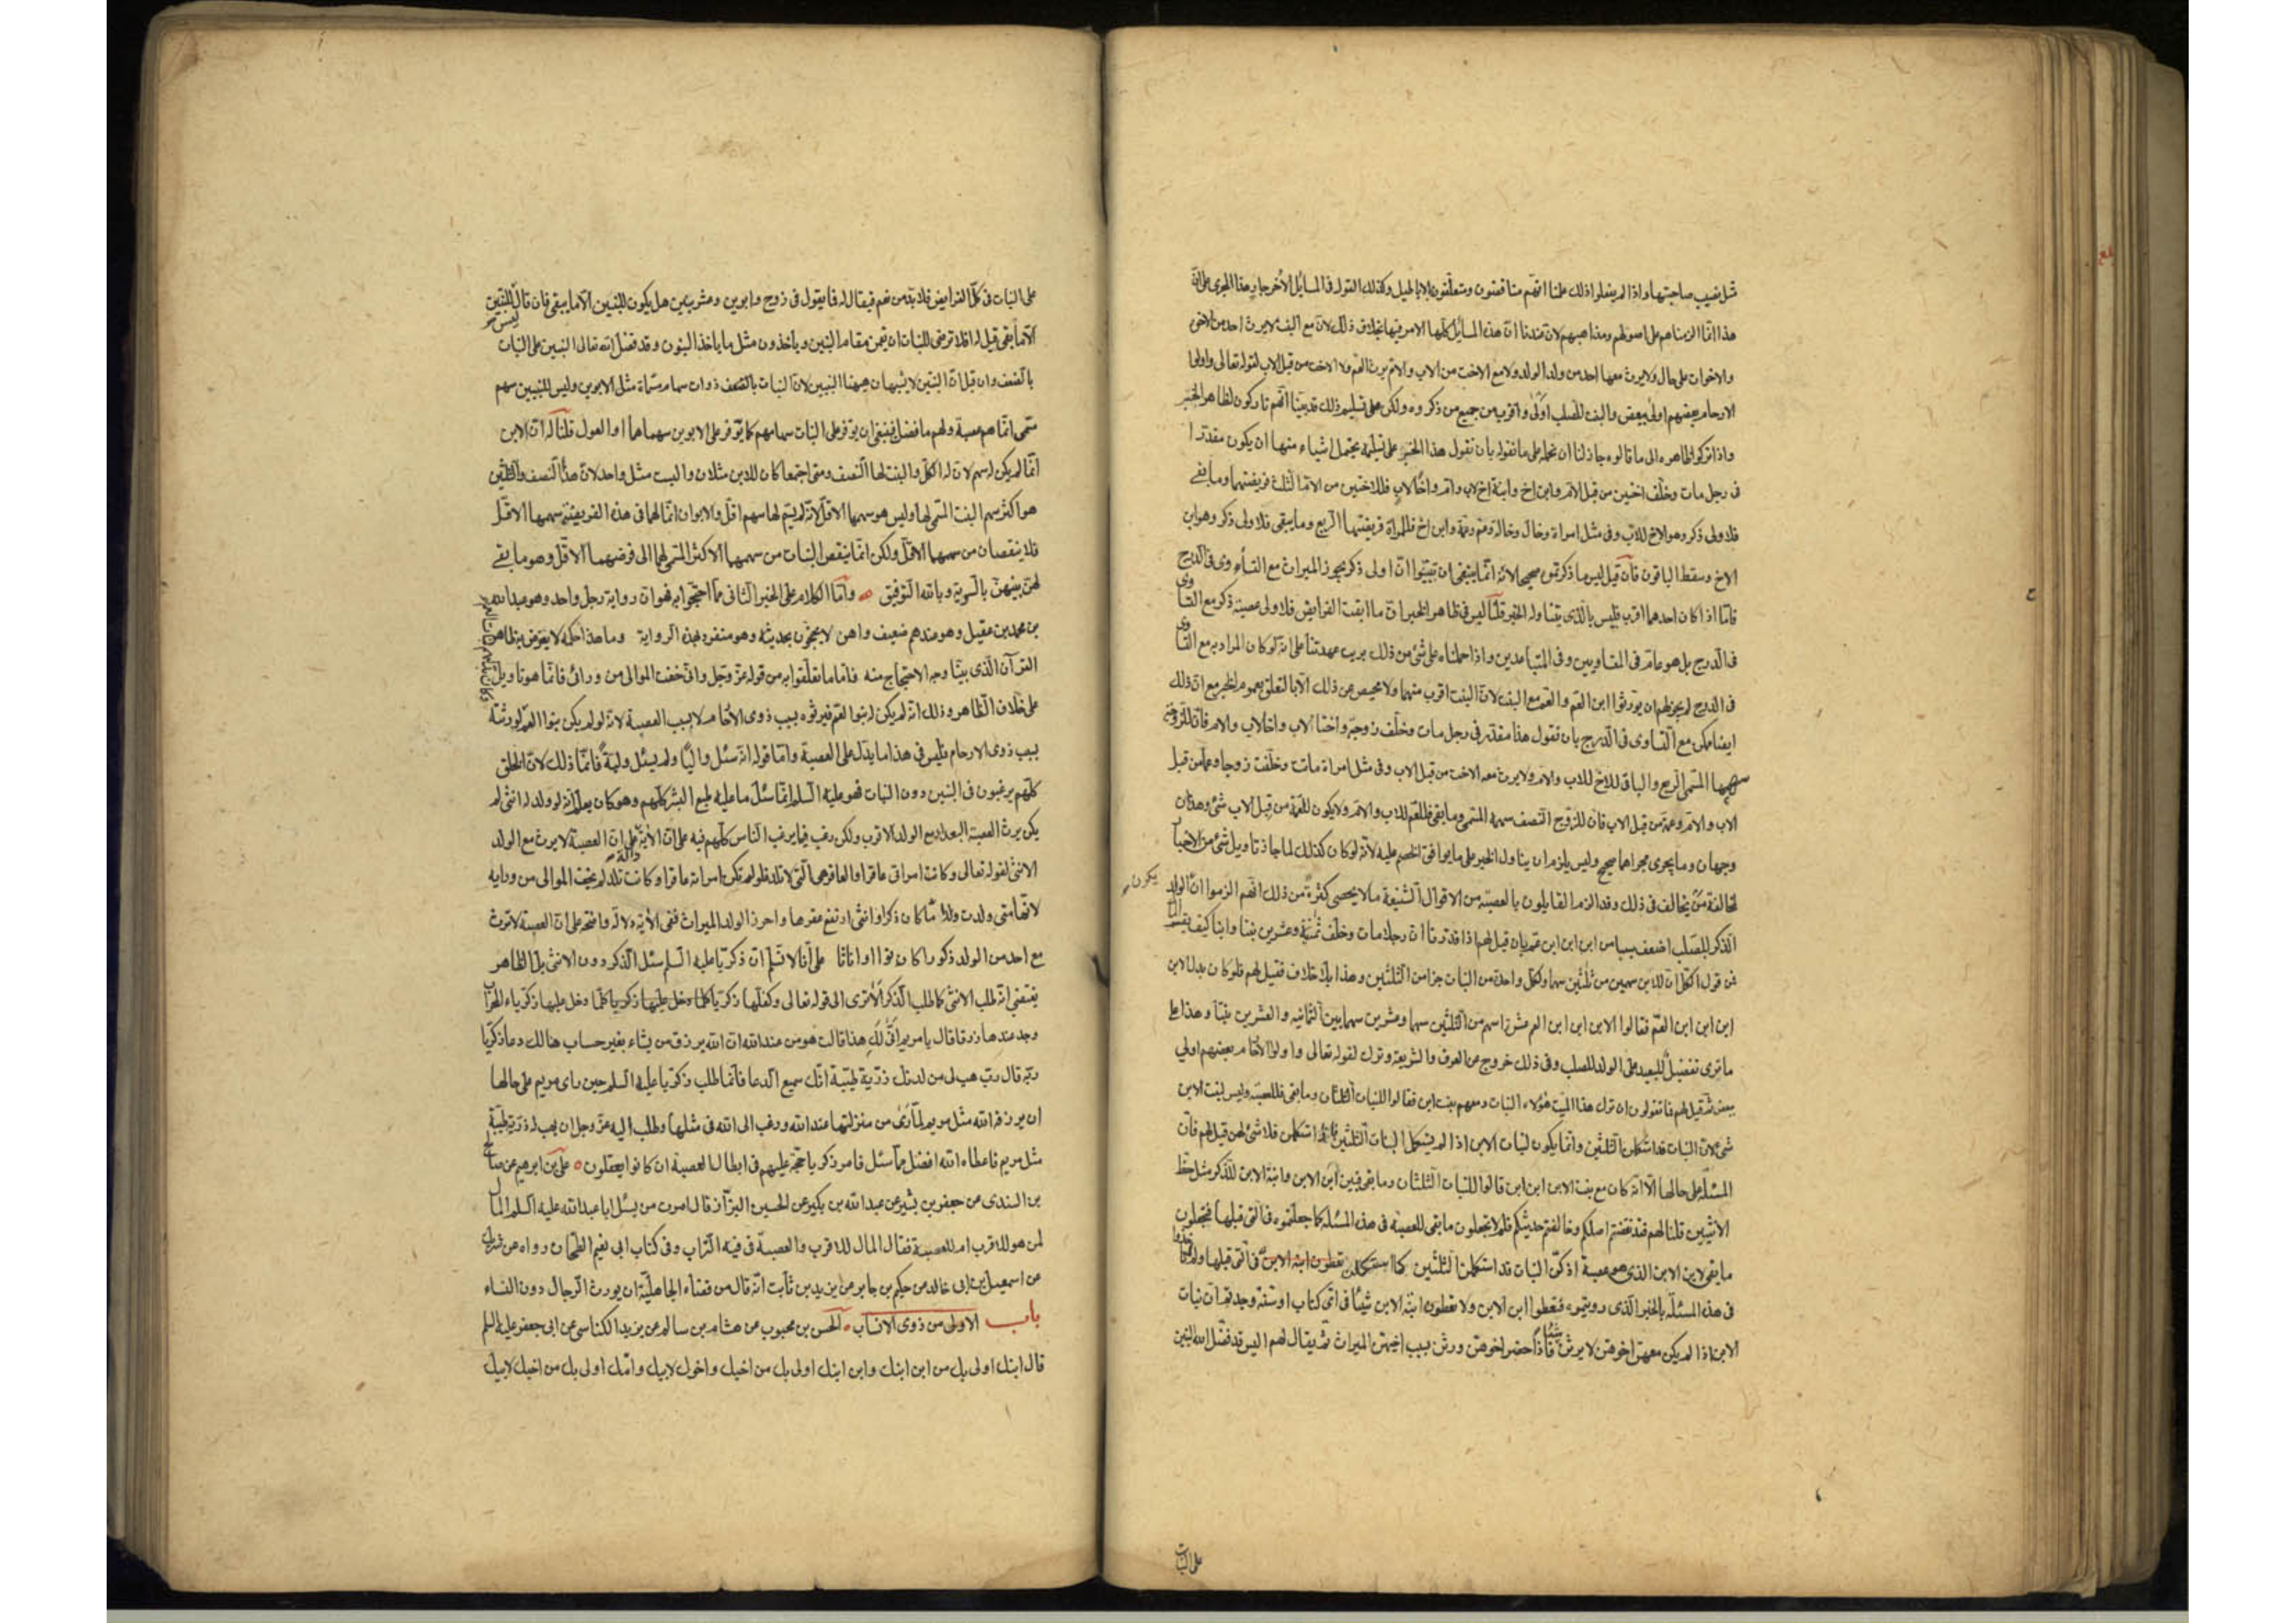 مثل نصيب صاحبتها واذا لم يفعلوا ذلك علمنا انهم مناقضون ومتعلقون بالاباطيل وكذلك القول فى المسايل الاُخر جار هذا المجرى على انّ
هذا انّما الزمناهم على اصولهم ومذاهبهم لانّ عندنا انّ هذه المسايل كلّها الامر فيها بخلاف ذلك لانّ مع البنت لا يرث احد من الاخوة
والاخوات على حال ولا يرث معها احد من ولد الولد ولا مع الاخت من الاب والام يرث العم ولا الاخت من قبل الاب لقوله تعالى واولوا
الارحام بعضهم اولى ببعض والبنت للصلب اولى واقرب من جميع من ذكروه ولكن على تسليم ذلك قد بيّنا انّهم تاركون لظاهر الخبر
واذا تركوا ظاهره الى ما قالوه جاز لنا ان نحمله على ما نقوله بان نقول هذا الخبر على تسليمه يحتمل اشياء منها ان يكون مقدّرا
فى رجل مات وخلّف اختين من قبل الام وابن اخ وابنة اخ لاب وام واخًا لاب فللاختين من الام الثلث فريضتهما وما بقى
فلاولى ذكر وهو الاخ للاب وفى مثل امراة وخال وخالة وعم وعمة وابن اخ فللمراة فريضتها الربع وما يبقى فلاولى ذكر وهو ابن
الاخ وسقط الباقون فان قيل ليس ما ذكرتموه صحيحا لانه انّما ينبغى ان تبيّنوا انّ اولى ذكر يحوز الميراث مع التساوى فى الدرج
فامّا اذا كان احدهما اقرب فليس بالذى يتناوله الخبر قلنا ليس فى ظاهر الخبر انّ ما ابقت الفرايض فلاولى عصبة ذكر مع التساوى
فى الدرج بل هو عام فى المتساويين وفى المتباعدين واذا حملناه على شئ من ذلك برئت عهدتنا على انه لو كان المراد به مع التساوى
فى الدرج لم يجز لهم ان يورّثوا ابن العم والعم مع البنت لانّ البنت اقرب منهما ولا محيص عن ذلك الّا بالتعلق بعموم الخبر مع انّ ذلك
ايضا ممكن مع التساوى فى الدرج بان نقول هذا مقدّر فى رجل مات وخلّف زوجة واختا لاب واخا لاب وام فان للزوجة
سهمها المسمّى الربع والباقى للاخ للاب والام ولا يرث معه الاخت من قبل الاب وفى مثل امراة ماتت وخلّفت زوجا وعمّا من قبل
الاب والام وعمة من قبل الاب فان للزوج النصف سهمه المسمى وما بقى فللعم للاب والام ولا يكون للعمة من قبل الاب شئ وهذان
وجهان وما يجرى مجراهما صحيح وليس يلزم ان يتاول الخبر على ما يوافق الخصم عليه لانّه لو كان كذلك لما جاز تاويل شئ من الاخبار
يكون
لمخالفة من يخالف فى ذلك وقد الزم القايلون بالعصبة من الاقوال الشنيعة ما لا يحصى كثرة من ذلك انّهم الزموا ان الولد
الذكر للصلب اضعف سببا من ابن ابن ابن عم بان قيل لهم اذا قدرنا انّ رجلا مات وخلّف ثمنية وعشرين بنتا وابنا كيف يقسم المال
فمن قول الكل انّ للابن سهمين من ثلثين سهما ولكل واحدة من البنات جزا من الثلثين وهذا بلا خلاف فقيل لهم فلو كان بدل الابن
ابن ابن ابن العم فقالوا لابن ابن ابن العم عشرة اسهم من الثلثين سهما وعشرين سهما بين الثمانية والعشرين بنتا وهذا على
ما ترى تفضيل للبعيد على الولد للصلب وفى ذلك خروج عن العرف والشريعة وترك لقوله تعالى واولوا الارحام بعضهم اولى
ببعض ثم قيل لهم فما تقولون ان ترك هذا الميت هؤلاء البنات ومعهم بنت ابن فقالوا للبنات الثلثان وما بقى فللعصبة وليس لبنت الابن
شئ لانّ البنات قد استكملن الثلثين وانّما يكون لبنات الابن اذا لم يستكمل البنات الثلثين فاذا استكملن فلا شئ لهن قيل لهم فان
المسئلة على حالها الّا انه كان مع بنت الابن ابن ابن قالوا للبنات الثلثان وما بقى فبين ابن الابن وابنة الابن للذكر مثل حظ
الانثيين قلنا لهم فقد نقضتم اصلكم وخالفتم حديثكم فلم لا تجعلون ما بقى للعصبة فى هذه المسئلة كما جعلتموه فى التى قبلها فتجعلون
ما بقى لابن الابن الذى هو عصبة اذ كنّ البنات قد استكملن الثلثين كما استكملن فى التى قبلها ولم لم تاخذوا
فى هذه المسئلة بالخبر الذى رويتموه فتعطوا ابن الابن ولا تعطون ابنة الابن شيئا وفى اىّ كتاب او سنة وجدتم ان بنات
الابن اذا لم يكن معهن اخوهن لا يرثن شيئا فاذا حضر اخوهن ورثن بسبب اخيهن الميراث ثم يقال لهم اليس قد فضّل الله البنين
على البنات
على البنات فى كلّ الفرايض فلا بد من نعم فيقال له فما يقول فى زوج وابوين وعشر بنين هل يكون للبنين الّا ما يبقى فان قال ليس للبنين
الّا ما بقى قيل له افلا ترضى للبنات ان يقمن مقام البنين وياخذون مثل ما ياخذ البنون وقد فضّل الله تعالى البنين على البنات
بالضعف وان قيل انّ البنين لا يشبهان ههنا البنين لانّ البنات بالنصف ذوات سهام مسماة مثل الابوين وليس للبنين سهم
مسمى انّما هم عصبة ولهم ما فضل فينبغى ان يوفر على البنات سهامهم كما يوفر على الابوين سهماهما او العول قلنا له انّ الابن
انّما لم يكن له سهم لانّ له الكل والبنت لها النصف ومتى اجتمعا كان للابن مثلان والبنت مثل واحد لانّ هذا النصف والثلثين
هو اكثر سهم البنت المسمّى لها وليس هو سهمها الاقل لانّه لم يسمّ لها سهم اقل والابوان انّما لهما فى هذه الفريضة سهمها الاقل
فلا ينقصان من سهمها الاقل ولكن انّما ينقص البنات من سهمهما الاكثر المسمى لهما الى فرضهما الاقل وهو ما بقى
لهن بينهن بالسوية وبالله التوفيق وامّا الكلام على الخبر الثانى ممّا احتجوا به فهو انّ رواية رجل واحد وهو عبد الله
بن محمد بن عقيل وهو عندهم ضعيف واهن لا يحتجّون بحديثه وهو منفرد بهذه الرواية وما هذا حكمه لا يعترض به ظاهر
القرآن الذى بيّنا وجه الاحتجاج منه فامّا ما تعلّقوا به من قوله عزّ وجلّ وانّى خفت الموالى من ورائى فانّما هو تاويل
على خلاف الظاهر وذلك انّه لم يكن له بنوا العم فيرثوه بسبب ذوى الارحام لا بسبب العصبة لانّه لو لم يكن بنوا العم لورثته
بسبب ذوى الارحام فليس فى هذا ما يدل على العصبة وامّا قوله انّه سئل واليًا ولم يسئل وليةً فانّما ذلك لانّ الخلق
كلّهم يرغبون فى البنين دون البنات فهو عليه السلم انّما سئل ما عليه طبع البشر كلّهم وهو كان يعلم انّه لو ولد له انثى لم
يكن يرث العصبة البعداء مع الولد الاقرب ولكن رغب فيما يرغب الناس كلّهم فيه على انّ الاية دالة على انّ العصبة لا يرث مع الولد
الانثى لقوله تعالى وكانت امراتى عاقرا والعاقر هى التى لا تلد فلو لم تكن امراته عاقرا وكانت تلد لم يخف الموالى من ورايه
لانّها متى ولدت ولدا ممّا كان ذكرا او انثى ارتفع عقرها واحرز الولد الميراث ففى الاية دلالة واضحة على انّ العصبة لا ترث
مع احد من الولد ذكورا كانوا او اناثا على انّا لا نسلّم انّ ذكريا عليه السلم سئل الذكر دون الانثى بل الظاهر
يقتضى انّه طلب الانثى كما طلب الذكر الا ترى الى قوله تعالى وكفّلها زكريا كلما دخل عليها زكريا المحراب
وجد عندها رزقا قال يا مريم انّى لكِ هذا قالت هو من عند الله انّ الله يرزق من يشاء بغير حساب هنالك دعا زكريّا
ربّه قال ربّ هب لى من لدنك ذريّة طيّبة انّك سميع الدعا فانّما طلب زكريا عليه السلم حين راى مريم على حالها
ان يرزقه الله مثل مريم لمّا راى من منزلتها عند الله ورغب الى الله فى مثلها وطلب اليه عزّ وجل ان يهب له ذرّيّة طيّبة
مثل مريم فاعطاه الله افضل ممّا سئل فامر ذكريا حجّة عليهم فى ابطال العصبة ان كانوا يعقلون علىّ بن ابرهيم عن صالح
بن السندى عن جعفر بن بشير عن عبد الله بن بكير عن الحسين البزّاز قال امرت من يسئل ابا عبد الله عليه السلم المال
لمن هو للاقرب ام للعصبة فقال المال للاقرب والعصبة فى فيه التراب وفى كتاب ابى نعيم الطحّان رواه عن شريك
عن اسمعيل بن ابى خالد عن حكيم بن جابر عن زيد بن ثابت انّه قال من قضاء الجاهليّة ان يورث الرجال دون النساء
باب الاولى من ذوى الانساب الحسن بن محبوب عن هشام بن سالم عن يزيد الكناسى عن ابى جعفر عليه السلم
قال ابنك اولى بك من ابن ابنك وابن ابنك اولى بك من اخيك واخوك لابيك وامّك اولى بك من اخيك لابيك